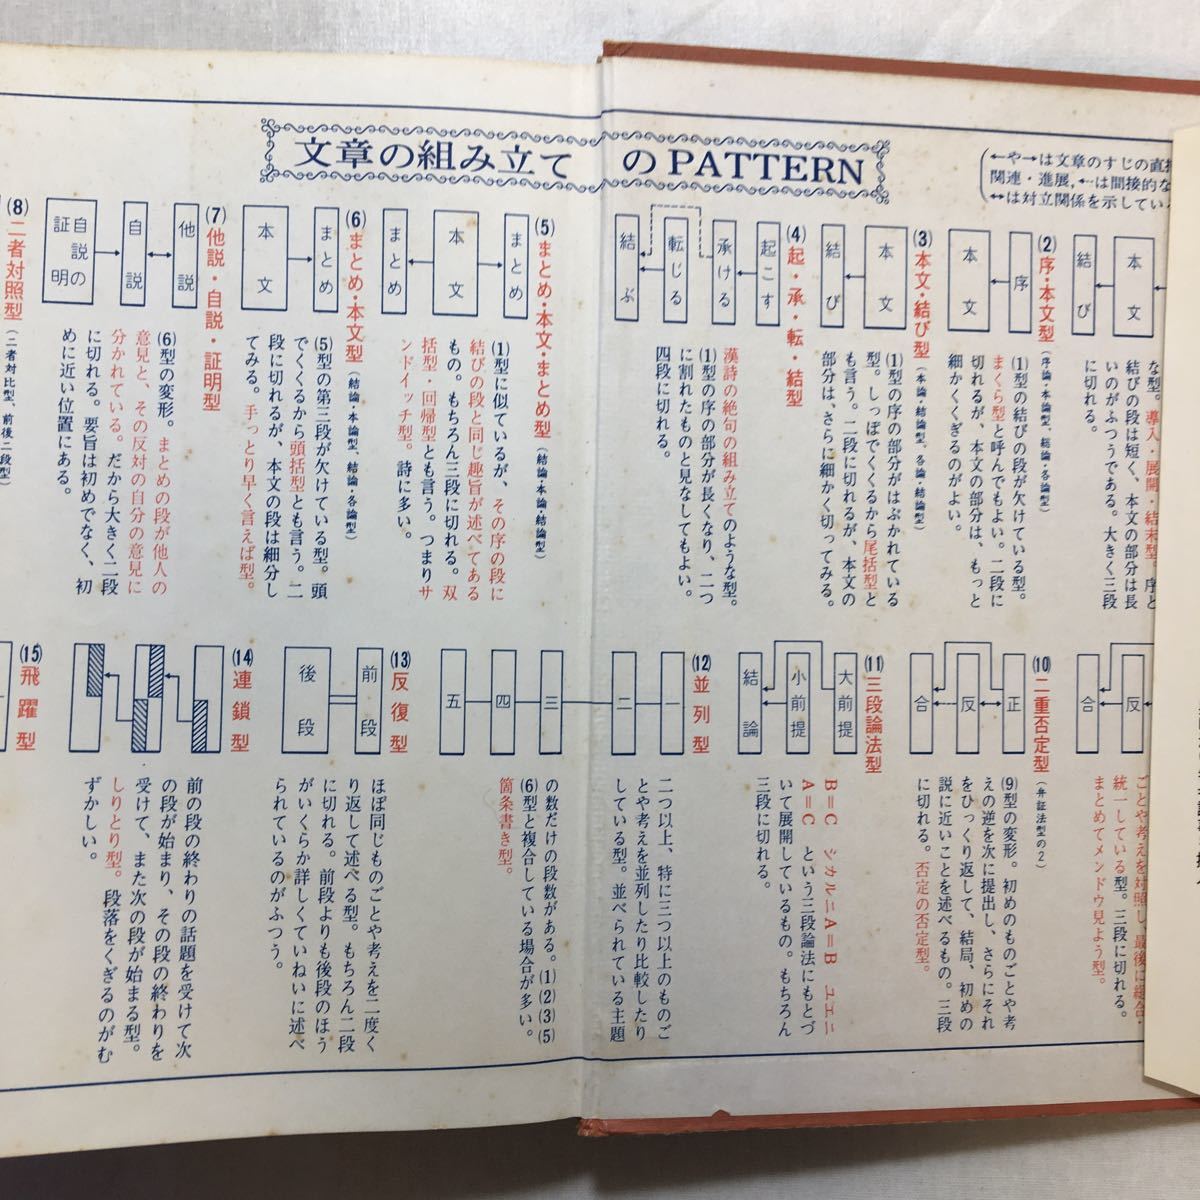 文章の組み立てのPATTERN
←や→は文章のすじの直接
関連・進展,⇠は間接的な
↔は対立関係を示している
本文
結び
な型。導入・展開・結末型。序と
結びの段は短く、本文の部分は長
いのがふつうである。大きく三段
に切れる。
(2)序・本文型(序論・本論型、総論・各論型)
序
本文
(1)型の結びの段が欠けている型。
まくら型と呼んでもよい。二段に
切れるが、本文の部分は、もっと
細かくくぎるのがよい。
(3)本文・結び型(本論・結論型、各論・結論型)
本文
結び
(1)型の序の部分がはぶかれている
型。しっぽでくくるから尾括型と
も言う。二段に切れるが、本文の
部分は、さらに細かく切ってみる。
(4)起・承・転・結型
起こす
承ける
転じる
結ぶ
漢詩の絶句の組み立てのような型。
(1)型の序の部分が長くなり、二つ
に割れたものと見なしてもよい。
四段に切れる。
(5)まとめ・本文・まとめ型(結論・本論・結論型)
まとめ
本文
まとめ
(1)型に似ているが、その序の段に
結びの段と同じ趣旨が述べてある
もの。もちろん三段に切れる。双
括型・回帰型とも言う。つまりサ
ンドイッチ型。詩に多い。
(6)まとめ・本文型(結論・本論型、結論・各論型)
まとめ
本文
(5)型の第三段が欠けている型。頭
でくくるから頭括型とも言う。二
段に切れるが、本文の段は細分し
てみる。手っとり早く言えば型。
(7)他説・自説・証明型
他説
自説
自説の証明
(6)型の変形。まとめの段が他人の
意見と、その反対の自分の意見に
分かれている。だから大きく二段
に切れる。要旨は初めでなく、初
めに近い位置にある。
(8)二者対照型(二者対比型、前後二段型)
反
合
ごとや考えを対照し、最後に総合・
統一している型。三段に切れる。
まとめてメンドウ見よう型。
(10)二重否定型(弁証法型の2)
正
反
合
(9)型の変形。初めのものごとや考
えの逆を次に提出し、さらにそれ
をひっくり返して、結局、初めの
説に近いことを述べるもの。三段
に切れる。否定の否定型。
(11)三段論法型
大前提
小前提
結論
B=C シカルニA=B ユエニ
A=C という三段論法にもとづ
いて展開しているもの。もちろん
三段に切れる。
(12)並列型
一
二
三
四
五
二つ以上、特に三つ以上のものご
とや考えを並列したり比較したり
している型。並べられている主題
の数だけの段数がある。(1)(2)(3)(5)
(6)型と複合している場合が多い。
箇条書き型。
(13)反復型
前段
後段
ほぼ同じものごとや考えを二度く
り返して述べる型。もちろん二段
に切れる。前段よりも後段のほう
がいくらか詳しくていねいに述べ
られているのがふつう。
(14)連鎖型
前の段の終わりの話題を受けて次
の段が始まり、その段の終わりを
受けて、また次の段が始まる型。
しりとり型。段落をくぎるのがむ
ずかしい。
(15)飛躍型